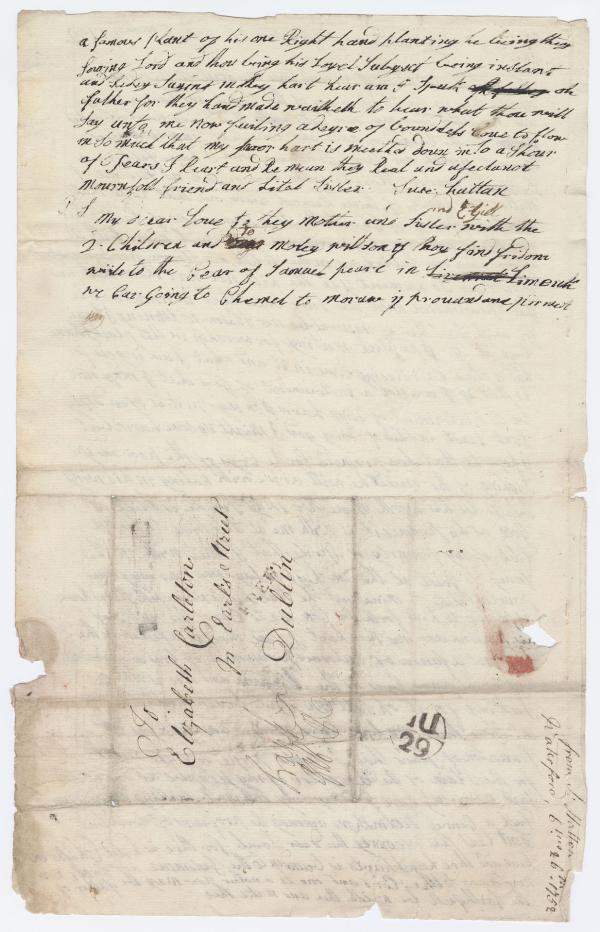 a famous plant of his one Right hand planting he being they
Lord and thou being his Loyel Subgect being instant
and Redey Saying in they hart hear am I Speak oh
father for they hand made waiteth to hear what thou will
Say unto me now feeling a degree of boundels Love to flow
in so much that my poor hart is melted down into a Shour
of Tears I Rest and Remean they Real and afectanot
mournfoll friend and Litol Sister Sus: Hatton
my dear Love to they mother and Sister with the
2 Children and to moley willson if thou find fridom
write to the Cear of Samuel peart in Limerick
we ear Going to Chamel to morow if provandance pirmet
To
Elizabeth Carleton
In Earl's Street
Dublin
IU
29
from S: Hatton
Waterford, 6: mo 26: 1752